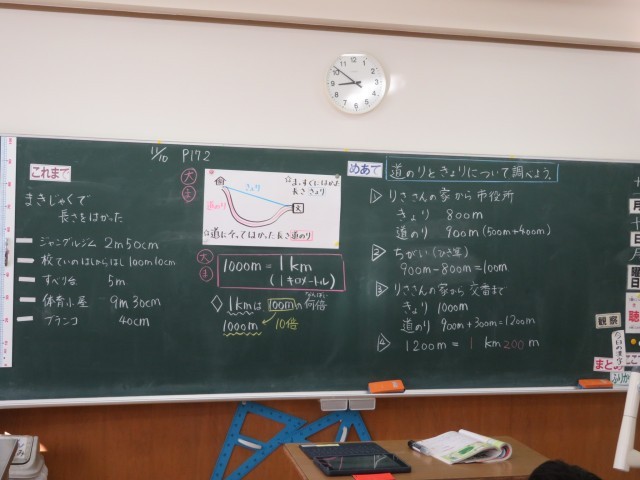 11/10 P172
これまで
まきじゃくで
長さをはかった
ジャングルジム 2m50cm
すべり台 5m
体育小屋 9m30cm
ブランコ 40cm
大
きょり
道のり
☆道にそってはかった長さ道のり
大
1000m = 1km
(1キロメートル)
1kmは100mの何倍
1000m 10倍
めあて 道のりときょりについて調べよう。
1 りささんの家から市役所
きょり 800m
道のり 900m (500m+400m)
2 ちがい(ひき算)
900m-800m=100m
3 りささんの家から交番まで
きょり 1000m
道のり 900m+300m=1200m
4 1200m = 1 km 200 m
観察
まとめ
月
日
曜日
聴
12
1
2
3
4
5
6
7
8
9
10
11